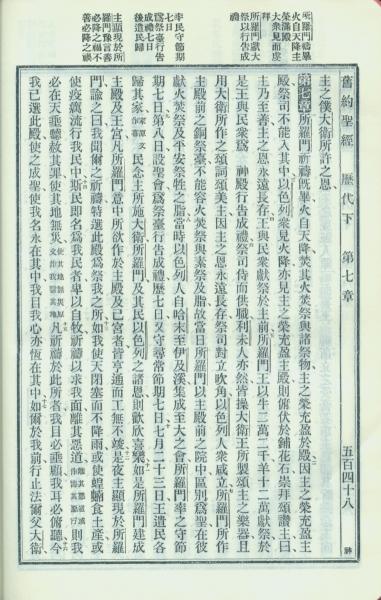 舊約聖經 歷代下 第七章 五百四十八
所羅門禱畢
火自天降主
榮滿殿
大衆見而虔
拜
所羅門獻大
祭以行告成
禮
率民守節期
七日
爲祭臺行告
成禮七日
後遣民歸
主顯現於所
羅門豫言善
必降之福不
善必降之禍
主之僕大衛所許之恩
第七章 所羅門祈禱既畢火自天降焚其火焚祭與諸祭物主之榮充盈於殿因主之榮充盈主
殿祭司不能入其中以色列衆見火降亦見主之榮充盈主殿則俯伏於鋪花石崇拜頌讚主曰
主乃至善主之恩永遠長存王與民衆獻祭於主前所羅門王以牛二萬二千羊十二萬獻祭於
是王與民衆爲 神殿行告成禮祭司侍而供職利未人亦然皆操大衛王所製頌主之樂器且
用大衛所作之頌詞頌美主因主之恩永遠長存祭司對立吹角以色列人衆咸立所羅門所作
主殿前之銅祭臺不能容火焚祭與素祭及脂故當日所羅門以主殿前之院中區別爲聖在彼
獻火焚祭及平安祭牲之脂當時以色列人自哈末至伊及溪集成至大之會所羅門率之守節
期七日第八日設聖會爲祭臺行告成禮歷七日又守常節期七日七月二十三日王遣民各
歸其家民念主所施大衛所羅門及其民以色列之諸恩則歡欣喜樂如是所羅門建成
主殿及王宮凡所羅門意中所欲作於主殿及己宮者皆亨通而工無不竣是夜主顯現於所羅
門諭之曰我聞爾之祈禱特選此殿爲祭我之所如我使天閉塞而不降雨或使蝗蝻食土產或
使疫癘流行我民中斯民卽名爲我民者卑以自牧祈禱以求我面離其惡道則我
必在天垂聽赦其罪使其地無災凡祈禱於此所者我目必垂顧我耳必俯聽今
我已選此殿使之成聖使我名永在其中我目我心亦恆在其中如爾於我前行止法爾父大衛